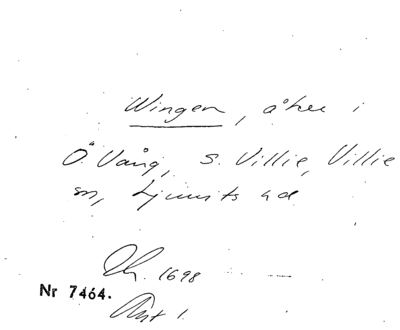 Wingen, åker i
Ö. Vång, S. Villie, Villie
sn, Ljunits hd
1698
Nr 7464.